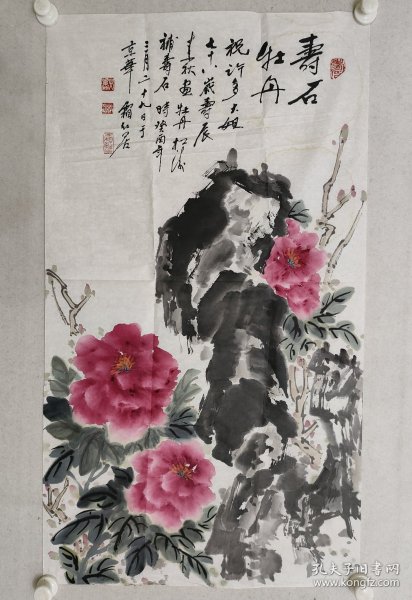 壽石
牡丹
祝許多大姐
七十八歲壽辰
素秋畫牡丹松濤
補壽石時癸酉年
三月二十九日于
京華霜紅居
孔夫子旧书网
www.kongfz.com